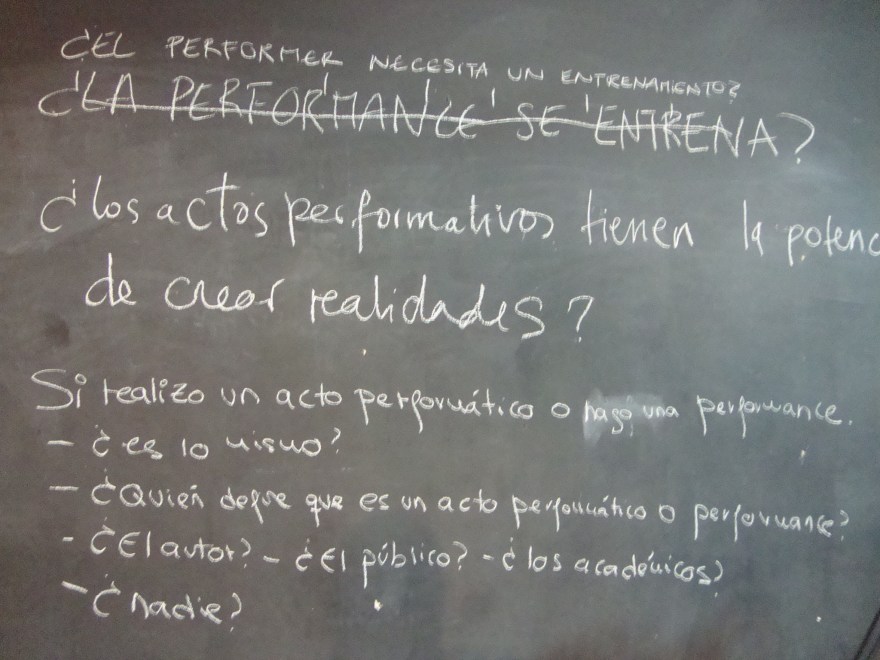 ¿EL PERFORMER NECESITA UN ENTRENAMIENTO?
¿LA PERFORMANCE SE ENTRENA?
¿los actos performativos tienen la potenc
de crear realidades?
Si realizo un acto performático o hago una performance.
- ¿es lo mismo?
- ¿Quién define que es un acto performático o performance?
- ¿El autor? - ¿El público? - ¿los académicos?
- ¿Nadie?